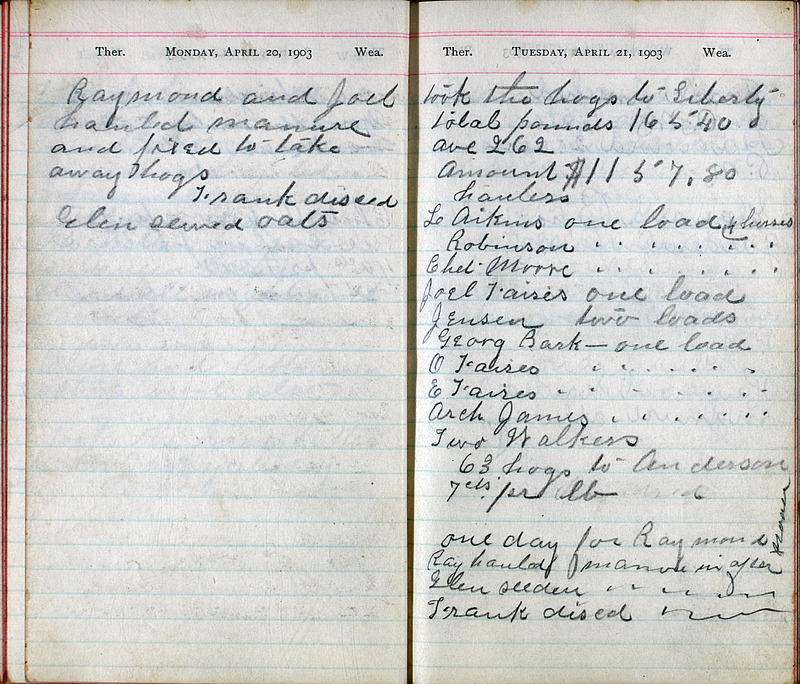 Ther. Monday, April 20, 1903 Wea.
Raymond and Joel
hauled manure
and fixed to take
away hogs
Frank dissed
Glen sewed oats
Ther. Tuesday, April 21, 1903 Wea.
took the hogs to Liberty
total pounds 16540
ave 262
Amount $1157,80
haulers
Le Aikins one load 4 horses
Robinson " " " " " "
Chet Moore " " " " " "
Joel Faires one load
Jensen two loads
Georg Bark — one load
O Faires " " " "
E Faires " " " "
Arch James " " " " " "
Two Walkers
63 hogs to Anderson
7cts pr lb
one day for Raymond
Ray hauld manure in after
noon
Glen seeden " " " "
Frank dised " "